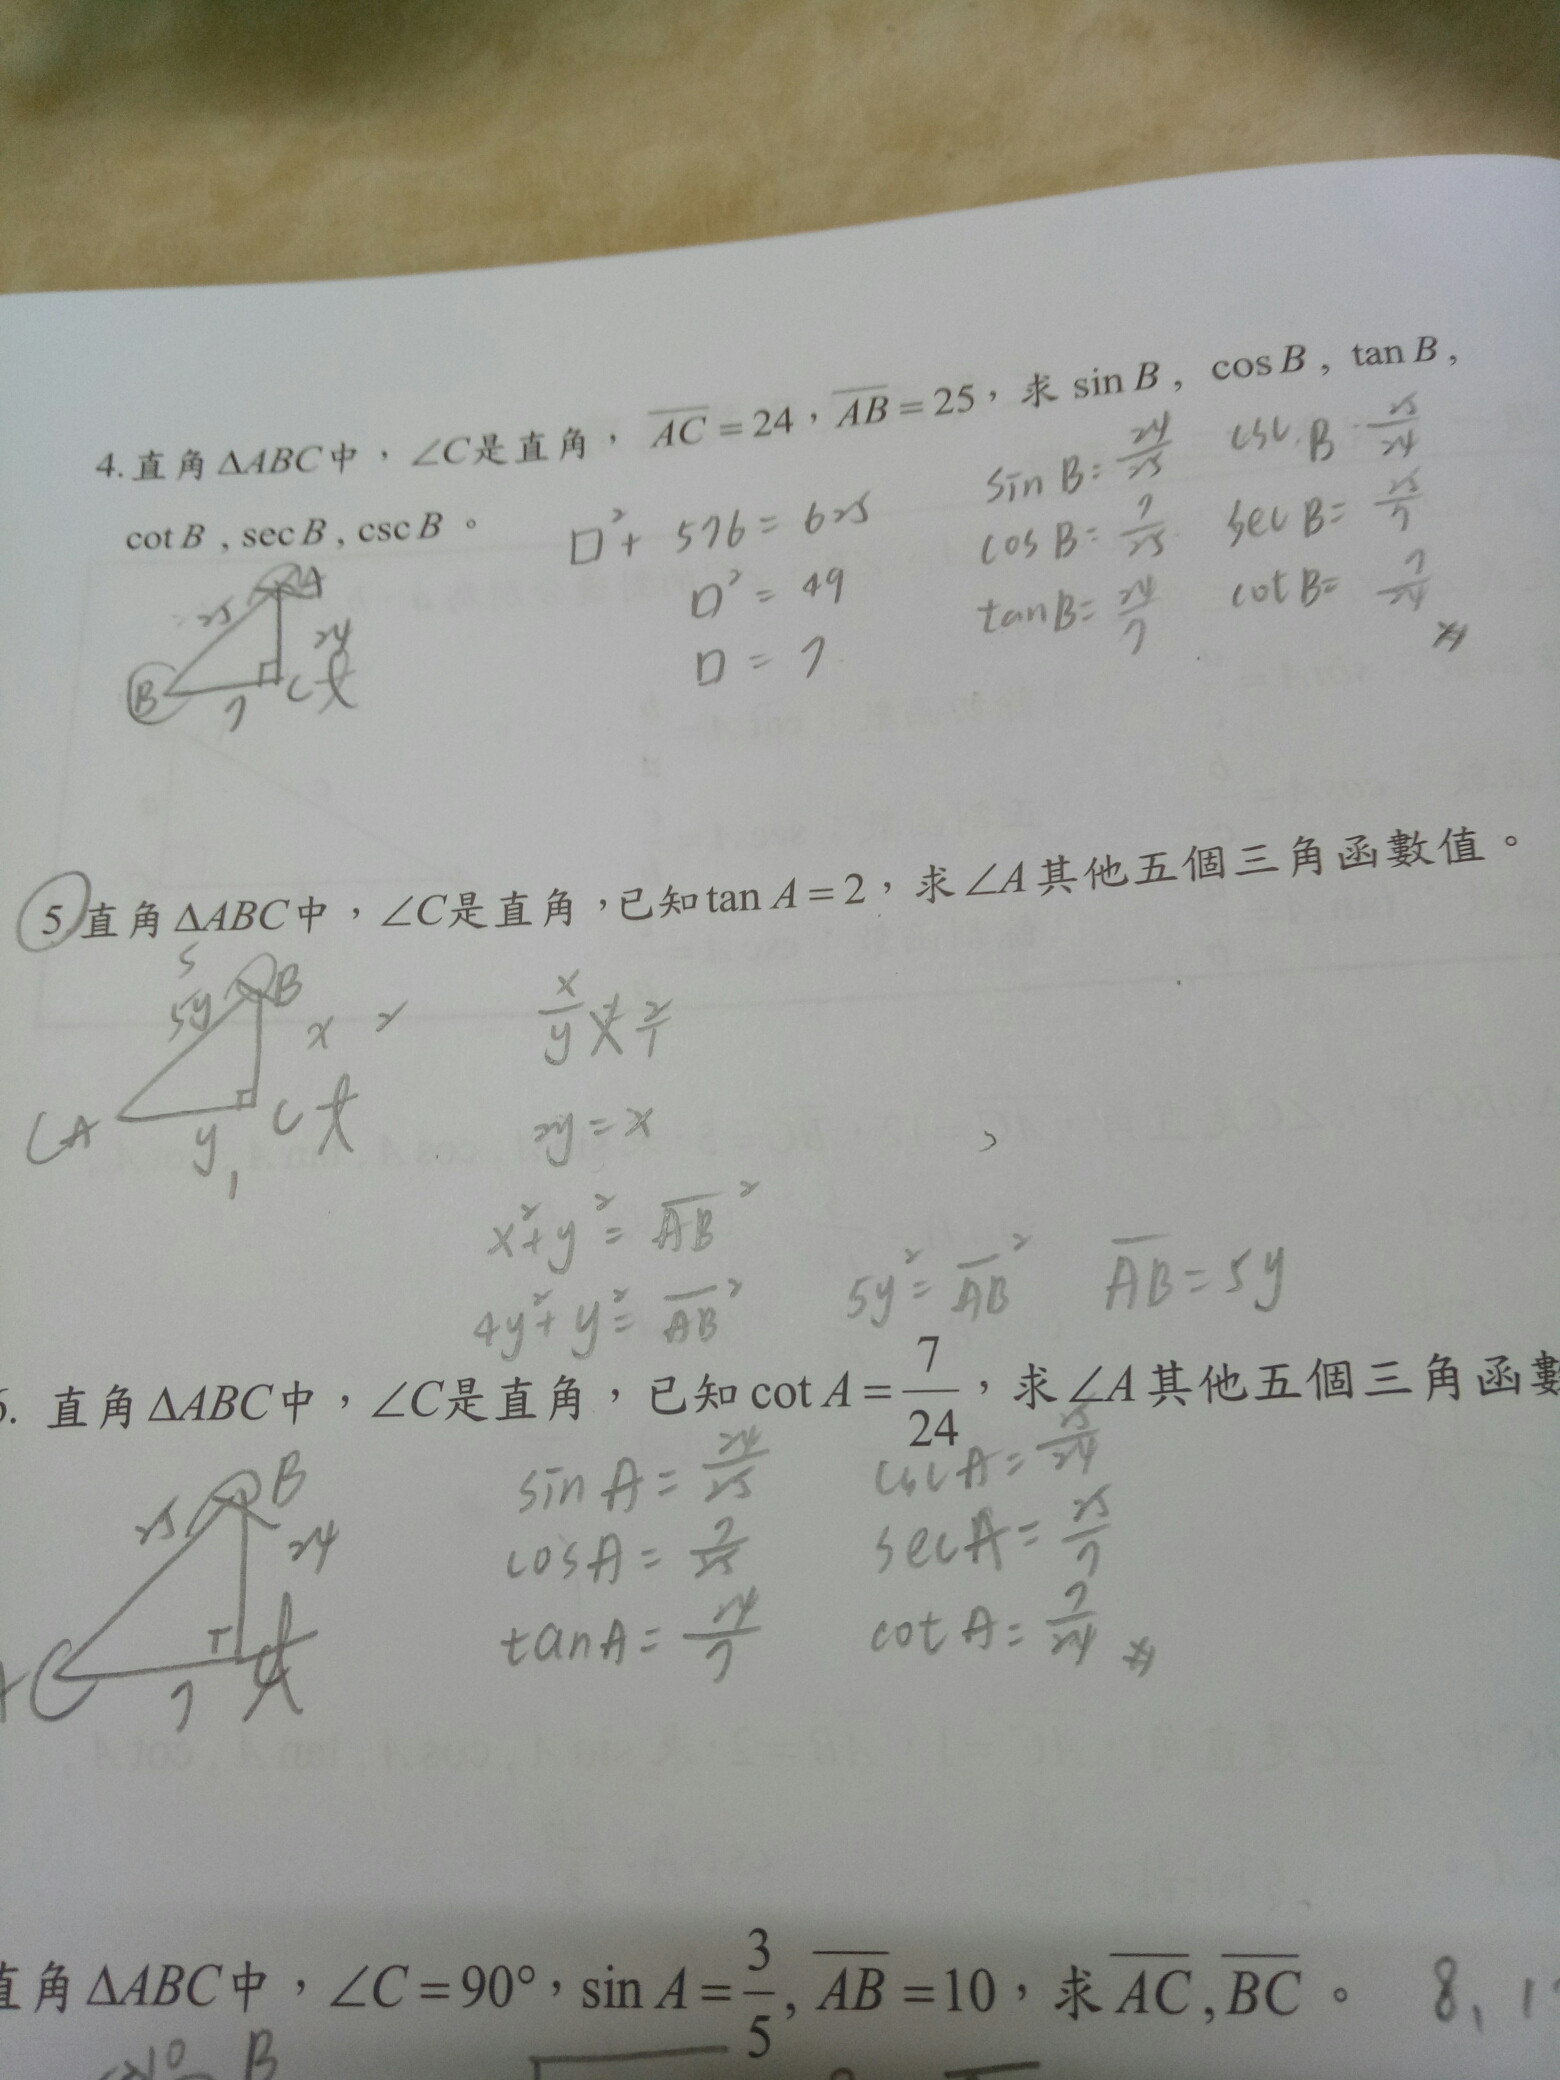 4. 直角 ΔABC中，∠C是直角， AC = 24，AB = 25，求 sin B， cos B，tan B，
cot B , sec B , csc B 。
□² + 576 = 625
□² = 49
□ = 7
sin B = 24/25 csc B = 25/24
cos B = 7/25 sec B = 25/7
tan B = 24/7 cot B = 7/24
A
25 24
B 7 C
5. 直角 ΔABC中，∠C是直角，已知 tan A = 2，求∠A其他五個三角函數值。
5
5y B
x 2
A y C
1
x/y 2/1
2y = x
x² + y² = AB²
4y² + y² = AB² 5y² = AB² AB = 5y
6. 直角 ΔABC中，∠C是直角，已知 cot A = 7/24，求∠A其他五個三角函數
sin A = 24/25 csc A = 25/24
cos A = 7/25 sec A = 25/7
tan A = 24/7 cot A = 7/24
B
25 24
A 7
直角 ΔABC中，∠C = 90°，sin A = 3/5 , AB = 10，求 AC , BC 。 8,
10 B